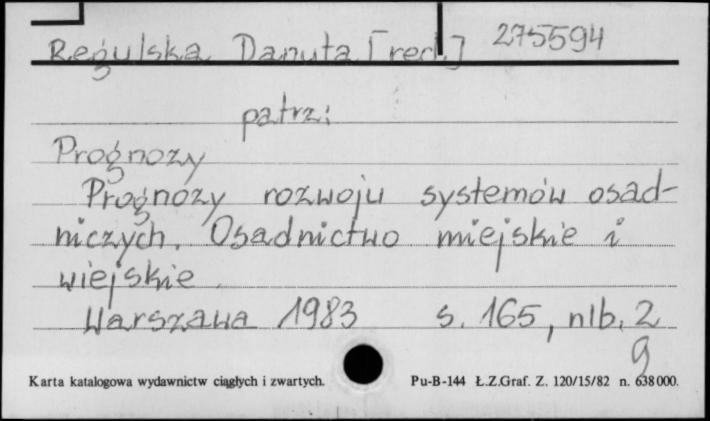 Regulska Danuta [red.] 275594
patrz:
Prognozy
Prognozy rozwoju systemów osad-
niczych. Osadnictwo miejskie i
wiejskie.
Warszawa 1983 s. 165, nlb. 2
9
Karta katalogowa wydawnictw ciągłych i zwartych. Pu-B-144 Ł.Z.Graf. Z. 120/15/82 n. 638000.